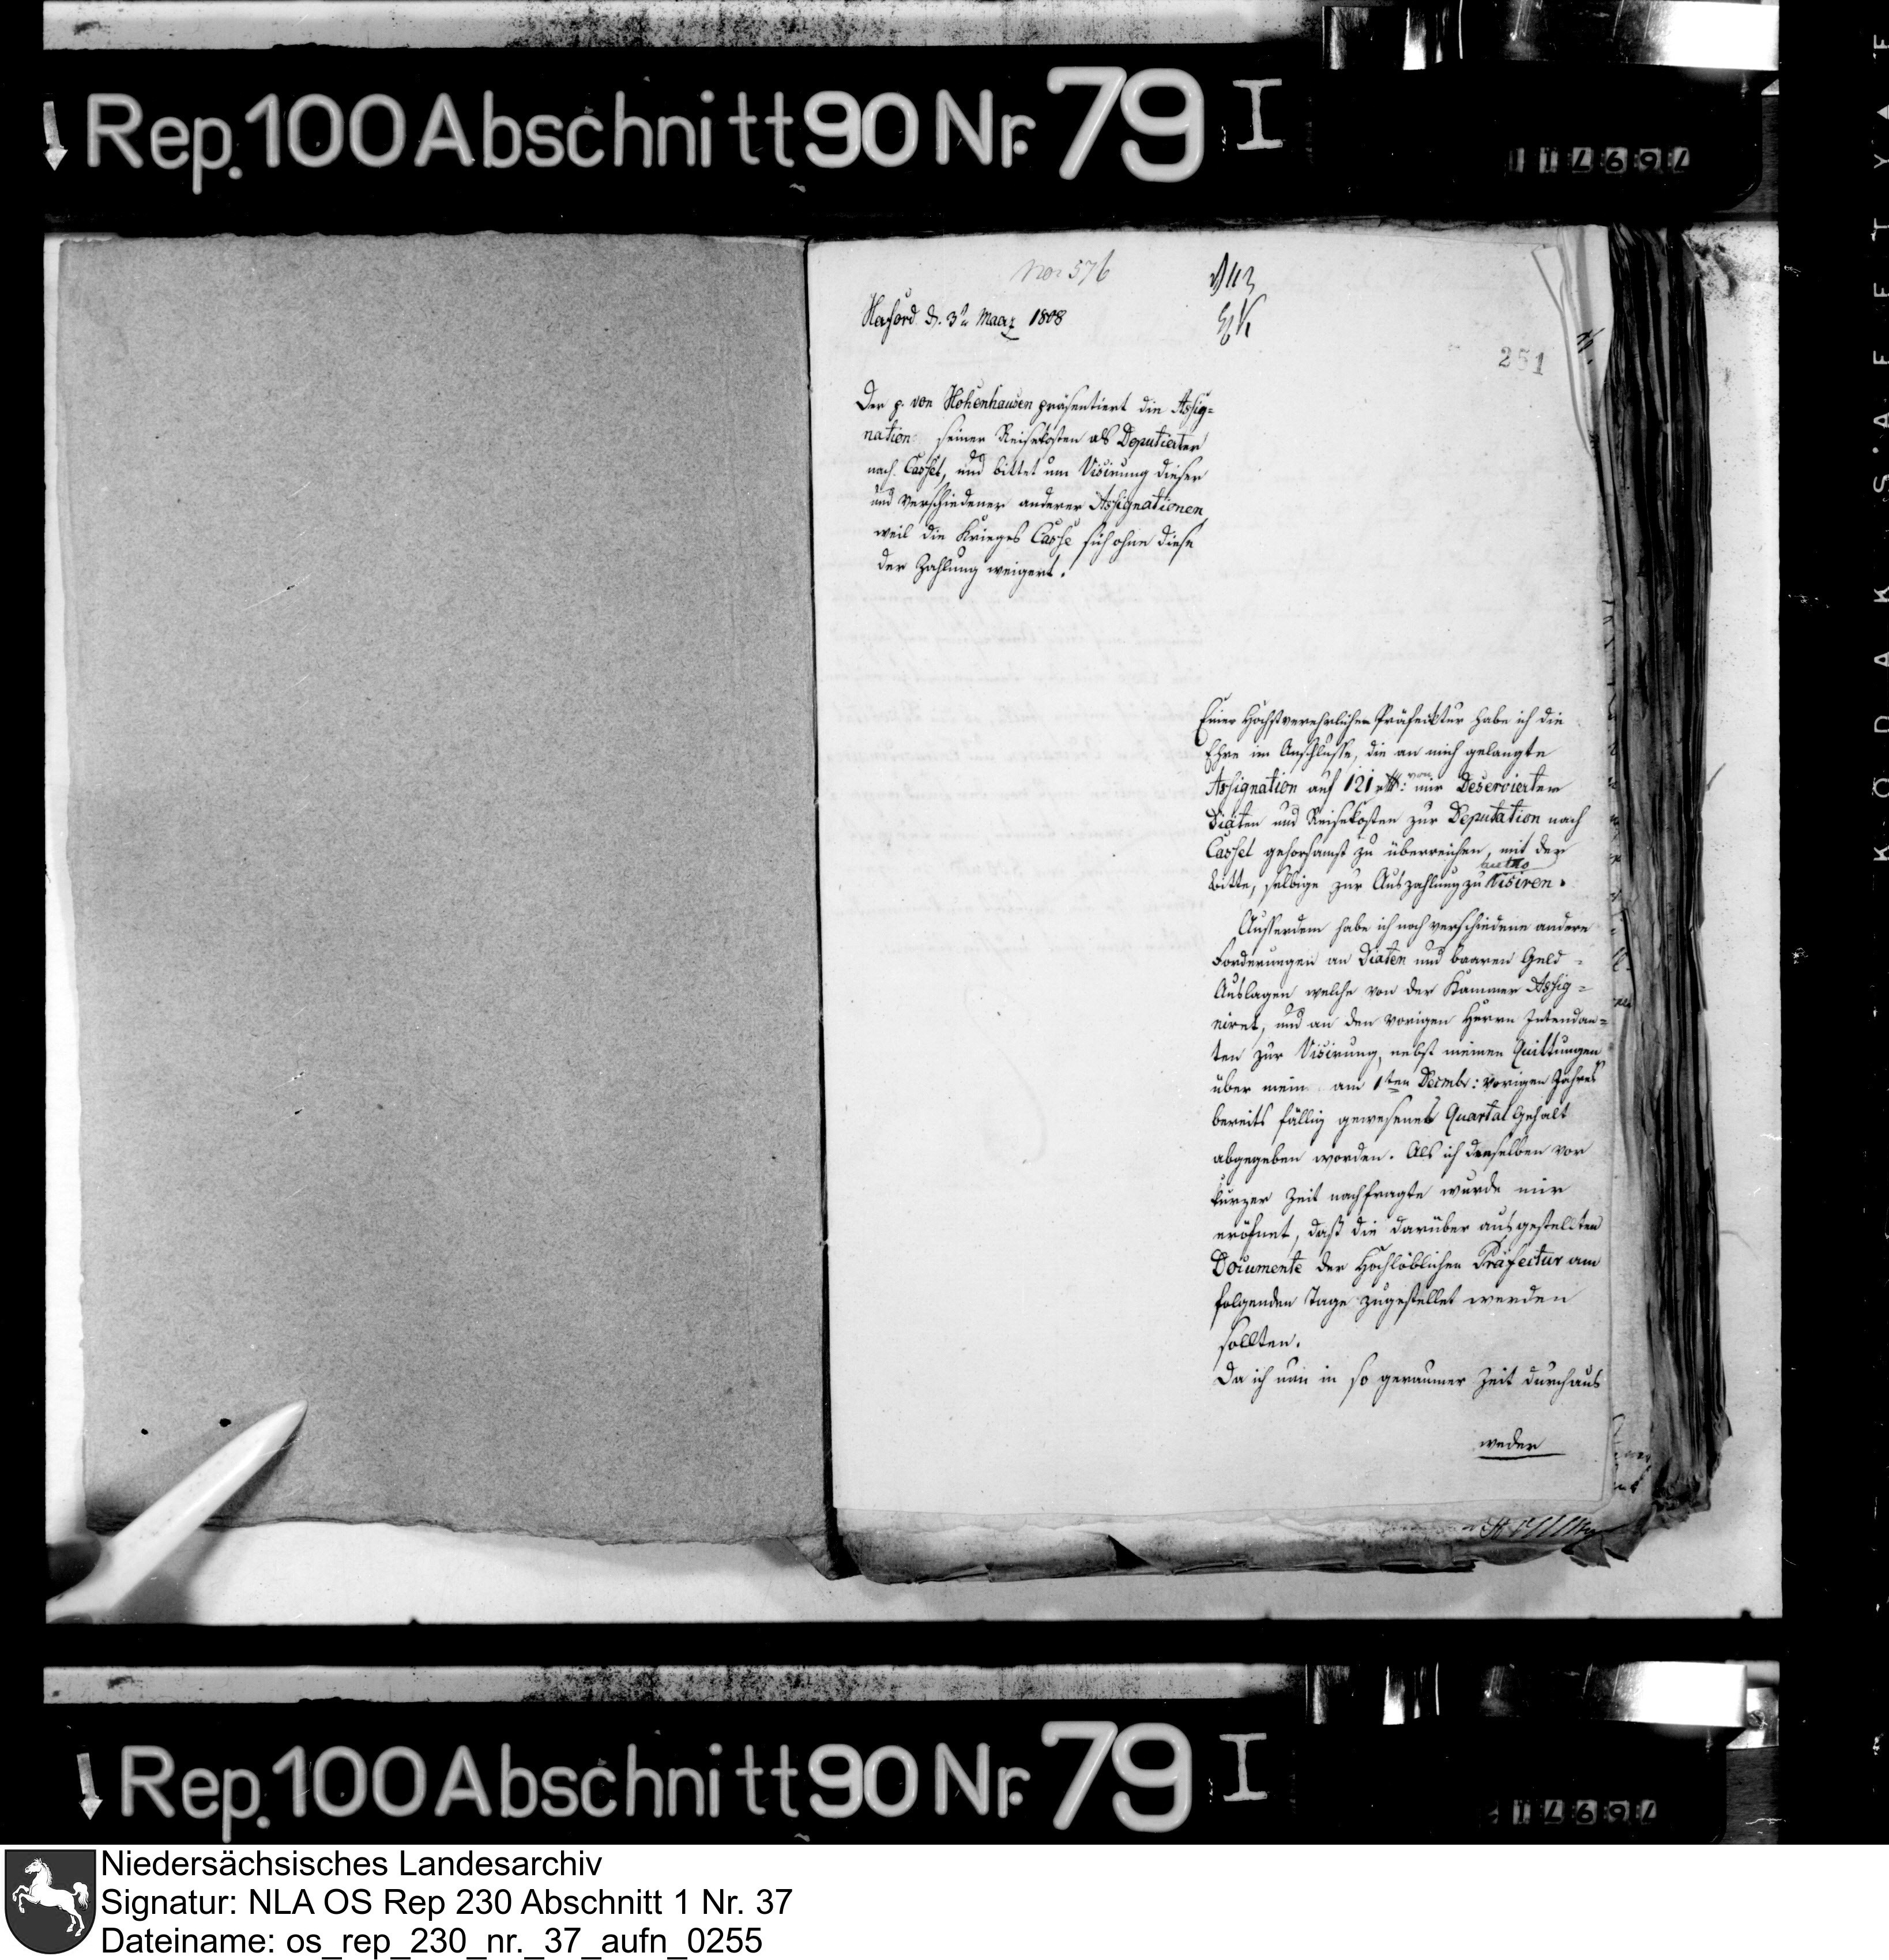 Rep. 100 Abschnitt 90 Nr. 79 I
117697
No: 576
Herford d. 3t Maaz 1808
251
Der p. von Hohenhausen präsentiert die Assig=
nation seiner Reisekosten als Deputierter
nach Cassel, und bittet um Visirung dieser
und verschiedener anderer Assignationen,
weil die Krieges Casse sich ohne diese
der Zahlung weigert.
Einer Höchstverehrlichen Präfecktur habe ich die
Ehre im Anschlusse, die an mich gelangte
Assignation auf 121 rtl: von mir Deservierter
Diäten und Reisekosten zur Deputation nach
Cassel gehorsamst zu überreichen, mit der
Bitte, selbige zur Auszahlung zu Visiren.
Ausserdem habe ich noch verschiedene andere
Forderungen an Diäten und baaren Geld=
Auslagen welche von der Kammer Assig=
niret, und an den vorigen Herrn Intendan=
ten zur Visirung, nebst meinen Quittungen
über mein am 1ten Decmbr: vorigen Jahres
bereits fällig gewesenes Quartal Gehalt
abgegeben worden. Als ich denselben vor
kurzer Zeit nachfragte wurde mir
eröfnet, daß die darüber ausgestellten
Documente der Hochlöblichen Präfectur am
folgenden Tage zugestellet werden
sollten.
Da ich nun in so geraumer Zeit durchaus
weder
KODAK SAFETY
Rep. 100 Abschnitt 90 Nr. 79 I
117697
Niedersächsisches Landesarchiv
Signatur: NLA OS Rep 230 Abschnitt 1 Nr. 37
Dateiname: os_rep_230_nr._37_aufn_0255